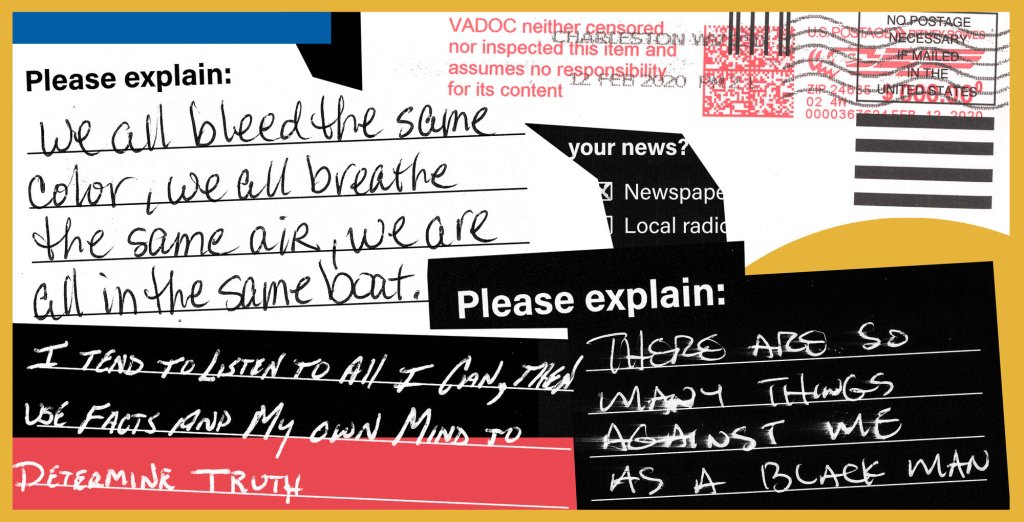 Please explain:
we all bleed the same
color, we all breathe
the same air, we are
all in the same boat.
VADOC neither censored
nor inspected this item and
assumes no responsibility
for its content
CHARLESTON
12 FEB 2020 PM
U.S. POSTAGE
ZIP 24635
02 4W
FEB 12 2020
NO POSTAGE
NECESSARY
IF MAILED
IN THE
UNITED STATES
your news?
Newspape
Local radio
Please explain:
I TEND TO LISTEN TO All I CAN, THEN
USE FACTS AND MY OWN MIND TO
DETERMINE TRUTH
THERE ARE SO
MANY THINGS
AGAINST ME
AS A BLACK MAN